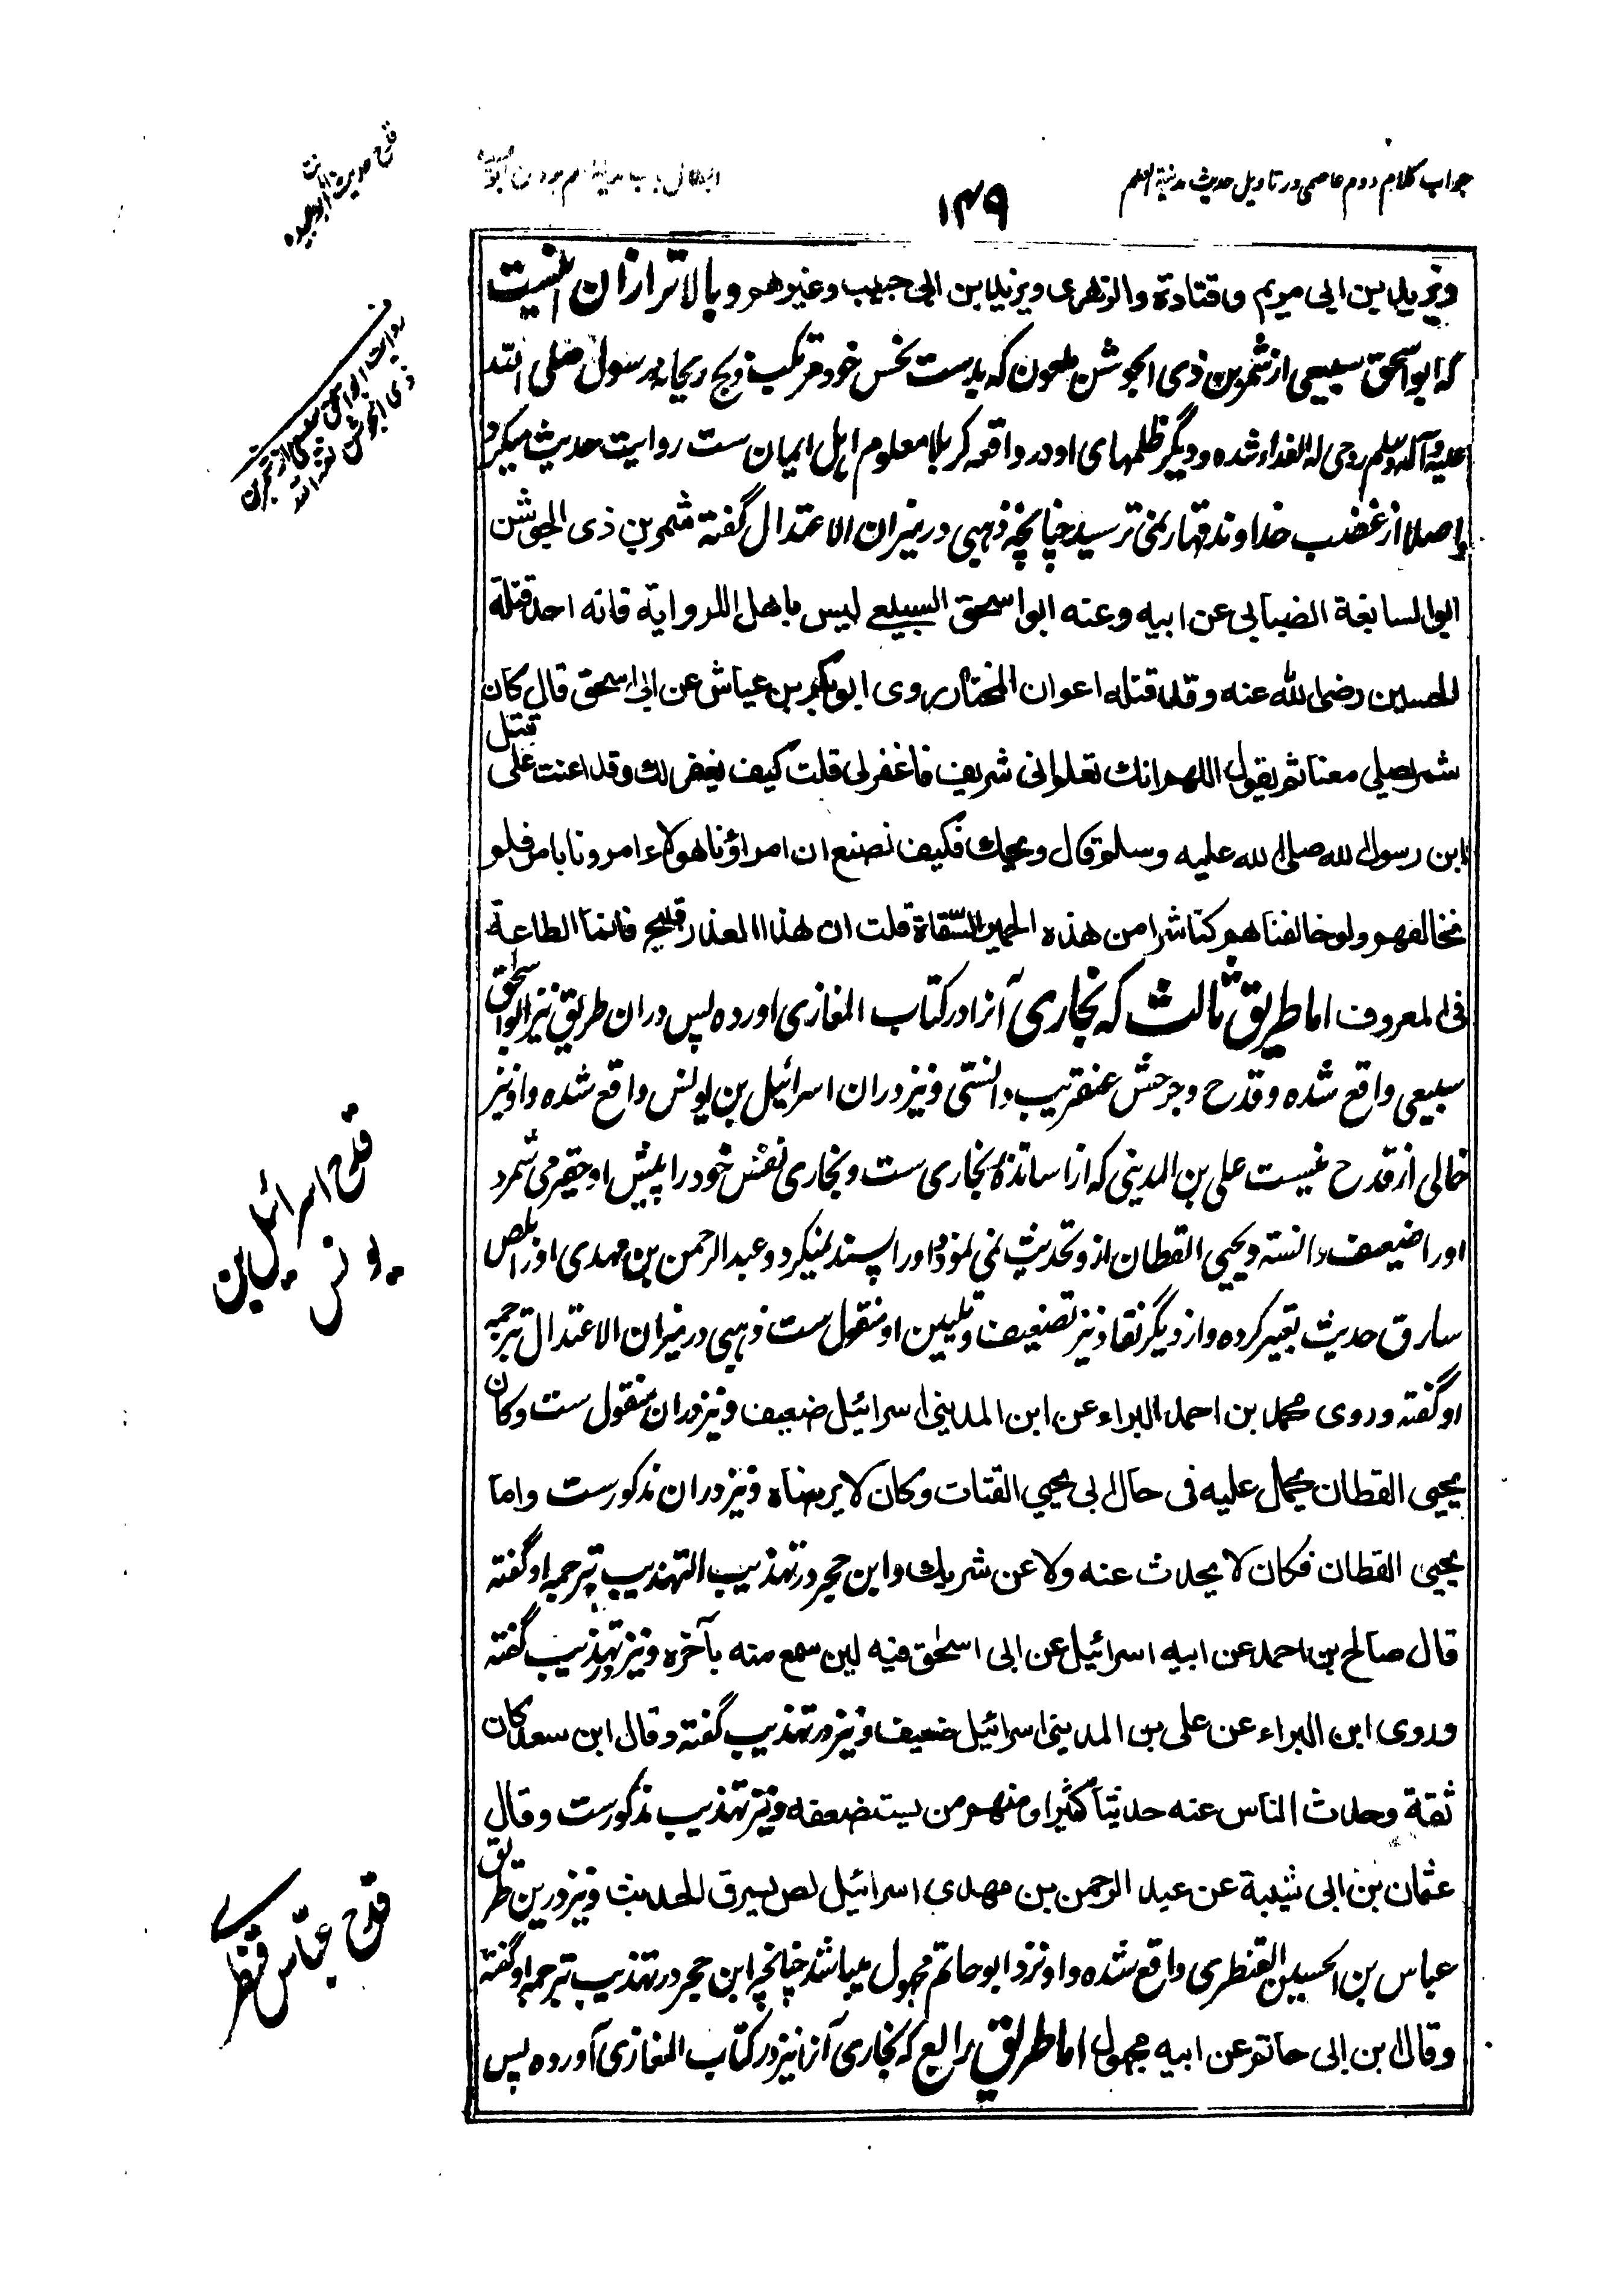 جواب کلام دوم عاصمی در تاویل حدیث مدینة العلم
۱۴۹
قدح حدیث ابوعبیده
ویزید بن ابی مریم وقتادة والزهری ویزید بن ابی حبیب وغیرهم و بالاتر ازان اینست
که ابو اسحق سبیعی از شمر بن ذی الجوشن ملعون که بدست نجس خود مرتکب ذبح ریحانه رسول صلی الله
علیه وآله وسلم روحی له الفداء شده و دیگر ظلمهای او در واقعه کربلا معلوم اهل ایمان ست روایت حدیث میکرد
و اصلا از غضب خداوند قهار نمی ترسید چنانچه ذهبی در میزان الاعتدال گفته شمر بن ذی الجوشن
ابو السابغة الضبابی عن ابیه وعنه ابو اسحق السبیعے لیس باهل للروایة فانه احد قتلة
الحسین رضی الله عنه وقد قتله اعوان المختار روی ابو بکر بن عیاش عن ابی اسحق قال کان
شمر یصلی معنا ثم یقول اللهم انك تعلم انی شریف فاغفر لی قلت کیف یغفر لك وقد اعنت علی قتل
ابن رسول الله صلی الله علیه وسلم قال ویحك فکیف نصنع ان امراؤنا هولاء امرونا بامر فلم
نخالفهم ولو خالفناهم کنا شرا من هذه الحمیر السقاة قلت ان هذا لعذر قبیح فانما الطاعة
فی المعروف اما طریق ثالث که بخاری آنرا در کتاب المغازی اورده پس دران طریق نیز ابو اسحق
سبیعی واقع شده و قدح و جرحش عنقریب دانستی و نیز دران اسرائیل بن یونس واقع شده و او نیز
خالی از قدح نیست علی بن المدینی که از اساتذه بخاری ست و بخاری نفس خود را پیش او حقیر می شمرد
او را ضعیف دانسته و یحیی القطان ازو تحدیث نمی نمود و او را پسند نمیکرد و عبد الرحمن بن مهدی او را بلص
سارق حدیث تعبیر کرده و از دیگر نقاد نیز تضعیف و تلیین او منقول ست ذهبی در میزان الاعتدال بترجمه
او گفته وروی محمد بن احمد البراء عن ابن المدینی اسرائیل ضعیف و نیز دران منقول ست وکان
یحیی القطان یحمل علیه فی حال ابی یحیی القتات وکان لا یرضاه و نیز دران مذکورست واما
یحیی القطان فکان لا یحدث عنه ولا عن شریك و ابن حجر در تهذیب التهذیب بترجمه او گفته
قال صالح بن احمد عن ابیه اسرائیل عن ابی اسحق فیه لین سمع منه بآخره و نیز در تهذیب گفته
وروی ابن البراء عن علی بن المدینی اسرائیل ضعیف و نیز در تهذیب گفته وقال ابن سعد کان
ثقة وحدث الناس عنه حدیثا کثیرا ومنهم من یستضعفه و نیز در تهذیب مذکورست وقال
عثمان بن ابی شیبة عن عبد الرحمن بن مهدی اسرائیل لص یسرق الحدیث و نیز درین طریق
عباس بن الحسین القنطری واقع شده و او نزد ابو حاتم مجهول میباشد چنانچه ابن حجر در تهذیب بترجمه او گفته
وقال ابن ابی حاتم عن ابیه مجهول اما طریق رابع که بخاری آنرا نیز در کتاب المغازی آورده پس
روایت ابو اسحق سبیعی از شمر بن
ذی الجوشن لعنه الله
قدح اسرائیل بن
یونس
قدح عباس قنطری